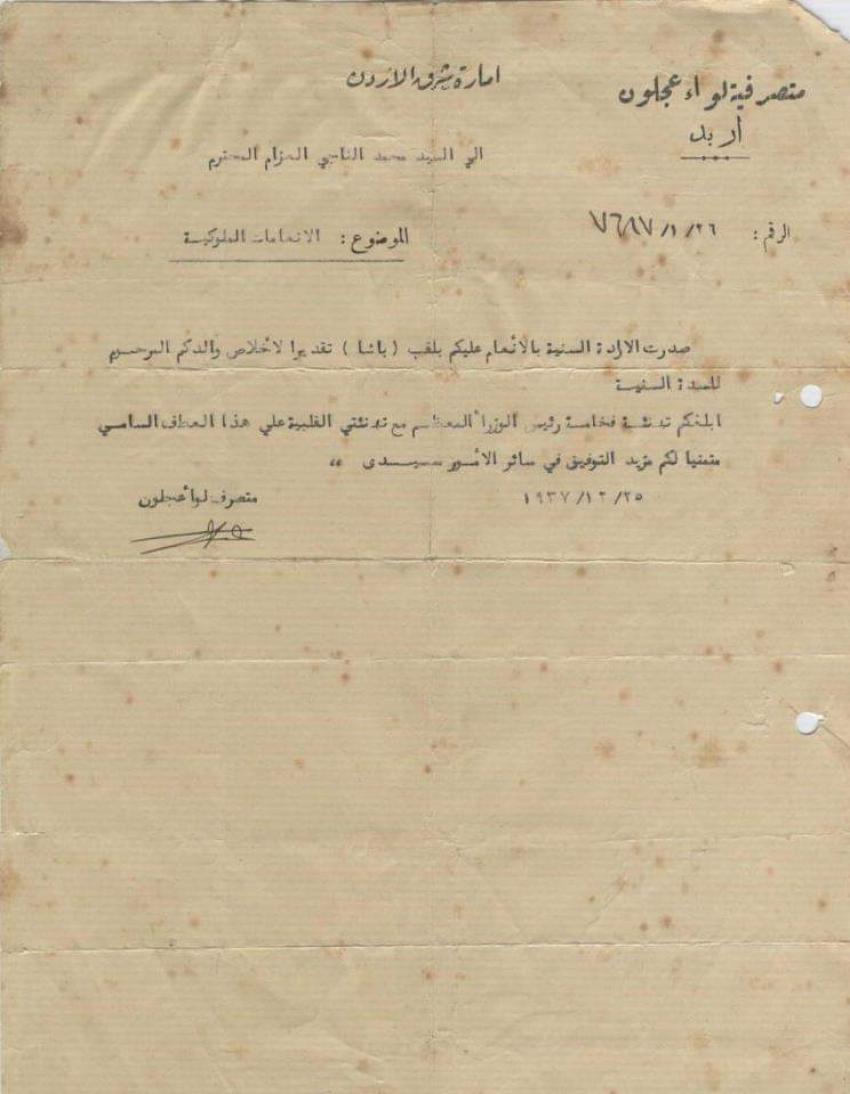 امارة شرق الاردن
متصرفية لواء عجلون
أربد
الي السيد محمد الناجي العزام المحترم
الرقم: ٢٦/١/
الموضوع: الانعامات الملوكية
صدرت الارادة السنية بالانعام عليكم بلقب (باشا) تقديرا لاخلاص والدكم المرحوم
للسدة السنية
ابلغكم تهنئة فخامة رئيس الوزرأ المعظم مع تهنئتي القلبية علي هذا العطف السامي
متمنيا لكم مزيد التوفيق في سائر الأمور سيدى ،،
٢٥/١٢/١٩٣٧
متصرف لوأ عجلون